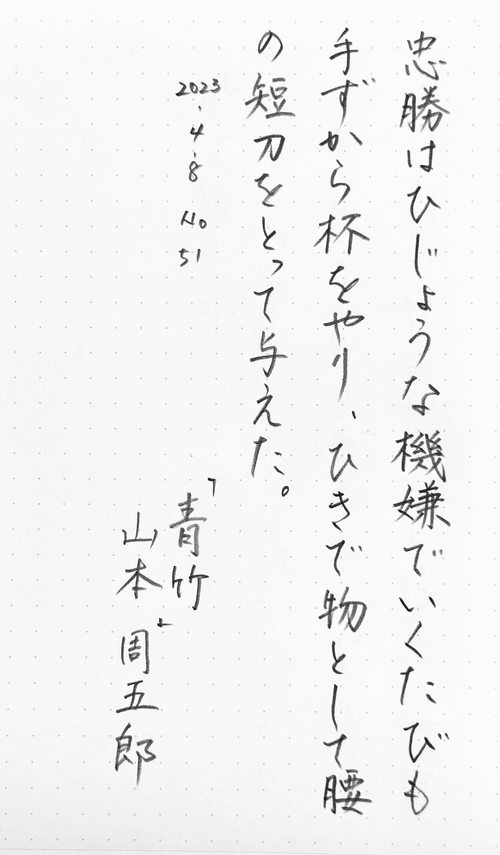 忠勝はひじょうな機嫌でいくたびも
手ずから杯をやり、ひきで物として腰
の短刀をとって与えた。
2023.4.8 No 51
「青竹」
山本周五郎